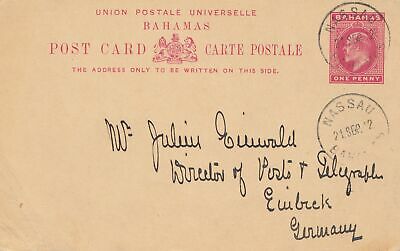 UNION POSTALE UNIVERSELLE
BAHAMAS
POST CARD CARTE POSTALE
THE ADDRESS ONLY TO BE WRITTEN ON THIS SIDE.
BAHAMAS
ONE PENNY
NASSAU
NASSAU
21 SEP 12
Mr Julius Einwald
Director of Posts & Telegraphs
Einbeck
Germany